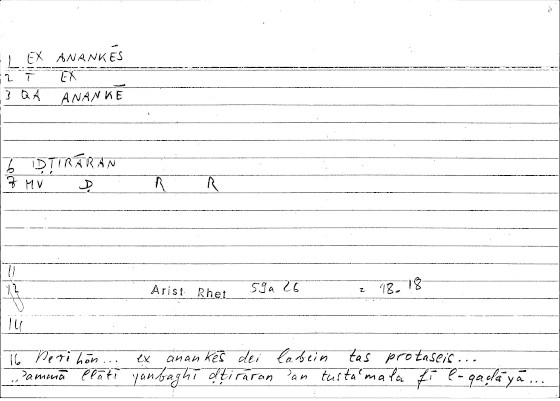 1 EX ANANKĒS
2 T EX
3 QA ANANKĒ
6 IḌṬIRĀRAN
7 MV Ḍ R R
11
12 Arist. Rhet 59a 26 = 18-18
14
16 Peri hōn... ex anankēs dei labein tas protaseis...
...ʾammā llātī yanbaghī ḍṭirāran ʾan tustaʿmala fī l-qaḍāyā...